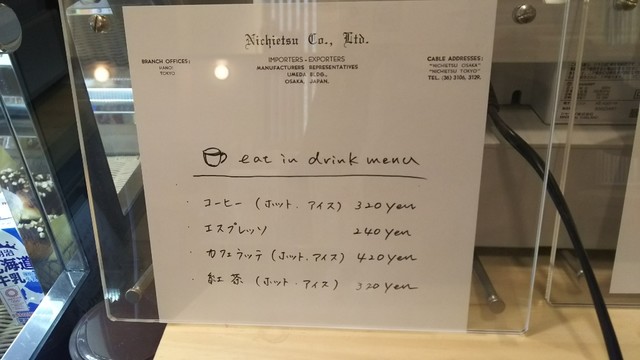 Nichietsu Co., Ltd.
IMPORTERS-EXPORTERS
MANUFACTURERS REPRESENTATIVES
UMEDA BLDG.,
OSAKA, JAPAN.
BRANCH OFFICES:
HANOI
TOKYO
CABLE ADDRESSES:
"NICHIETSU OSAKA"
"NICHIETSU TOKYO"
TEL. (36) 3106, 3129.
eat in drink menu
・コーヒー (ホット.アイス) 320yen
・エスプレッソ 240yen
・カフェラッテ (ホット.アイス) 420yen
・紅茶 (ホット.アイス) 320yen
明治
北海道
牛乳